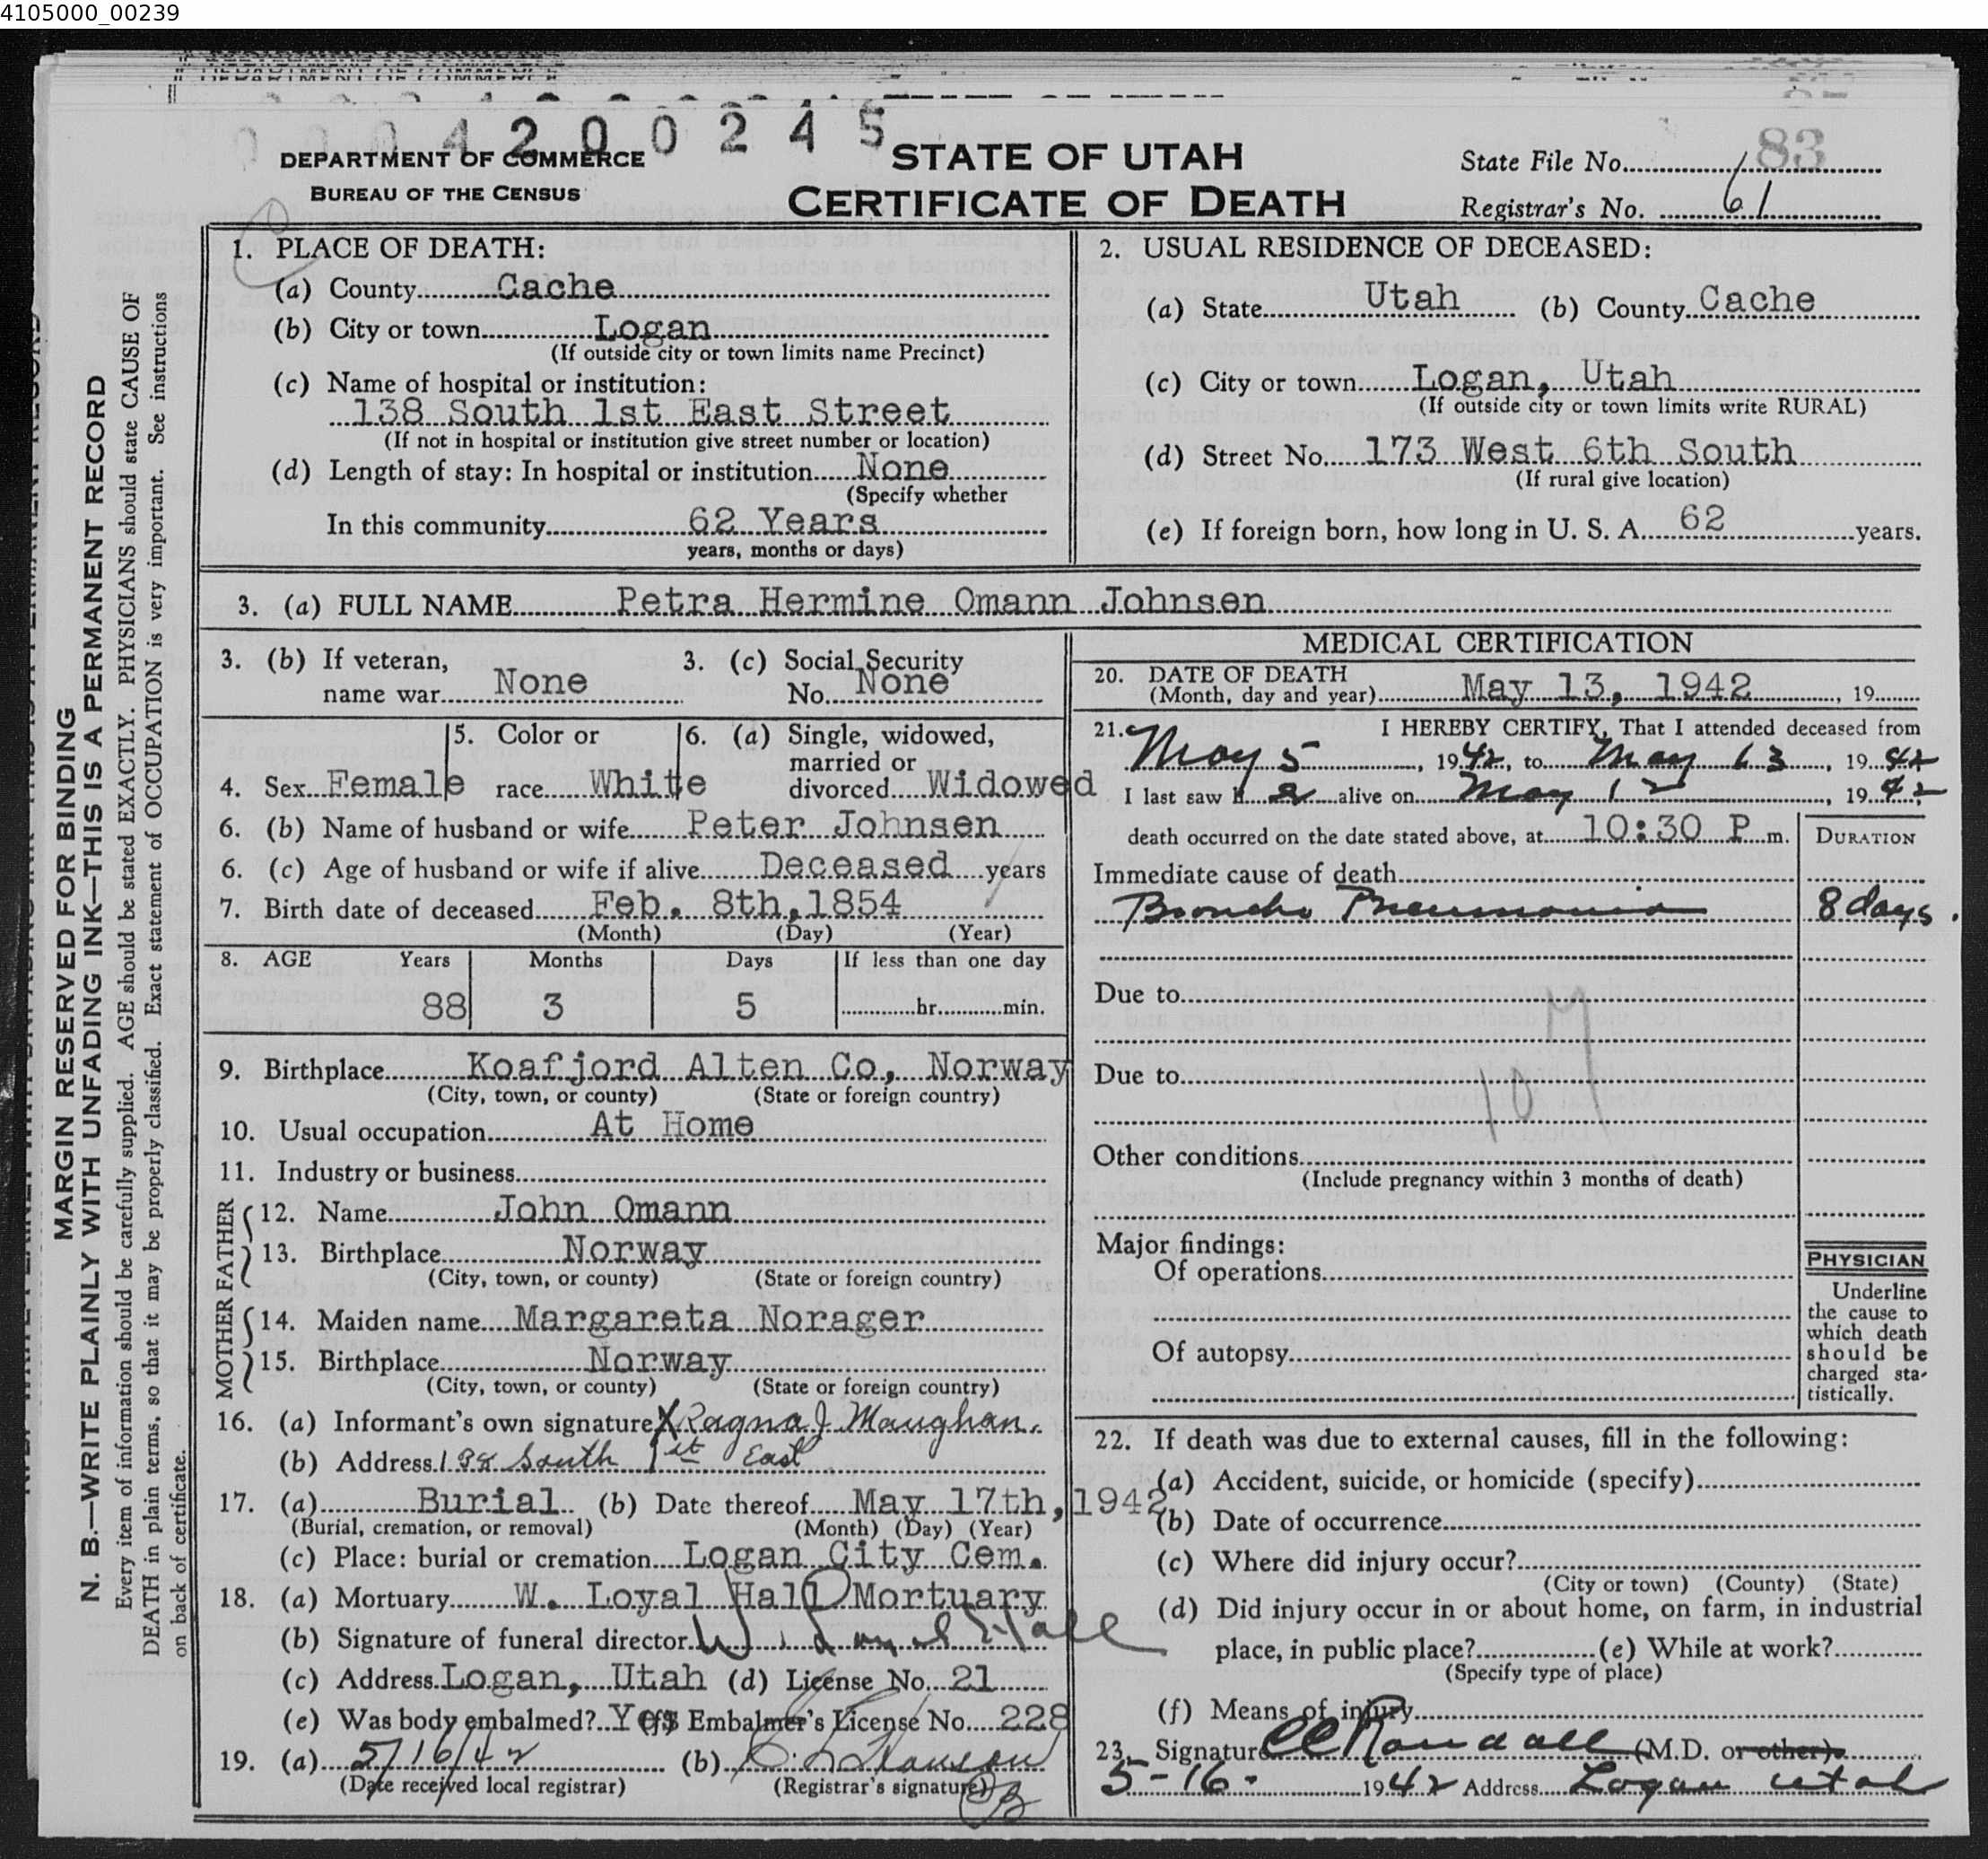 4105000_00239
0004200245
DEPARTMENT OF COMMERCE
BUREAU OF THE CENSUS
STATE OF UTAH
CERTIFICATE OF DEATH
State File No. 83
Registrar's No. 61
MARGIN RESERVED FOR BINDING
N. B.—WRITE PLAINLY WITH UNFADING INK—THIS IS A PERMANENT RECORD
Every item of information should be carefully supplied. AGE should be stated EXACTLY. PHYSICIANS should state CAUSE OF
DEATH in plain terms, so that it may be properly classified. Exact statement of OCCUPATION is very important. See instructions
on back of certificate.
1. PLACE OF DEATH:
(a) County Cache
(b) City or town Logan
(If outside city or town limits name Precinct)
(c) Name of hospital or institution:
138 South 1st East Street
(If not in hospital or institution give street number or location)
(d) Length of stay: In hospital or institution None
(Specify whether
In this community 62 Years
years, months or days)
2. USUAL RESIDENCE OF DECEASED:
(a) State Utah (b) County Cache
(c) City or town Logan, Utah
(If outside city or town limits write RURAL)
(d) Street No. 173 West 6th South
(If rural give location)
(e) If foreign born, how long in U. S. A. 62 years.
3. (a) FULL NAME Petra Hermine Omann Johnsen
3. (b) If veteran, name war None
3. (c) Social Security No. None
4. Sex Female
5. Color or race White
6. (a) Single, widowed, married or divorced Widowed
6. (b) Name of husband or wife Peter Johnsen
6. (c) Age of husband or wife if alive Deceased years
7. Birth date of deceased Feb. 8th, 1854
(Month) (Day) (Year)
8. AGE Years Months Days If less than one day
88 3 5 hr. min.
9. Birthplace Koafjord Alten Co, Norway
(City, town, or county) (State or foreign country)
10. Usual occupation At Home
11. Industry or business
FATHER
12. Name John Omann
13. Birthplace Norway
(City, town, or county) (State or foreign country)
MOTHER
14. Maiden name Margareta Norager
15. Birthplace Norway
(City, town, or county) (State or foreign country)
16. (a) Informant's own signature X Ragna J. Maughan.
(b) Address 138 South 1st East
17. (a) Burial (b) Date thereof May 17th, 1942
(Burial, cremation, or removal) (Month) (Day) (Year)
(c) Place: burial or cremation Logan City Cem.
18. (a) Mortuary W. Loyal Hall Mortuary
(b) Signature of funeral director W. Loyal Hall
(c) Address Logan, Utah (d) License No. 21
(e) Was body embalmed? Yes (f) Embalmer's License No. 228
19. (a) 5/16/42 (b)
(Date received local registrar) (Registrar's signature)
MEDICAL CERTIFICATION
20. DATE OF DEATH
(Month, day and year) May 13, 1942, 19
21. I HEREBY CERTIFY, That I attended deceased from
May 5, 1942, to May 13, 1942
I last saw h alive on May 12, 1942,
death occurred on the date stated above, at 10:30 P.m.
DURATION
Immediate cause of death
Broncho Pneumonia 8 days.
Due to
Due to
Other conditions
(Include pregnancy within 3 months of death)
Major findings:
Of operations
Of autopsy
PHYSICIAN
Underline
the cause to
which death
should be
charged sta-
tistically.
22. If death was due to external causes, fill in the following:
(a) Accident, suicide, or homicide (specify)
(b) Date of occurrence
(c) Where did injury occur?
(City or town) (County) (State)
(d) Did injury occur in or about home, on farm, in industrial
place, in public place? (e) While at work?
(Specify type of place)
(f) Means of injury
23. Signature CC Randall (M.D. or other)
5-16- 1942 Address Logan Utah